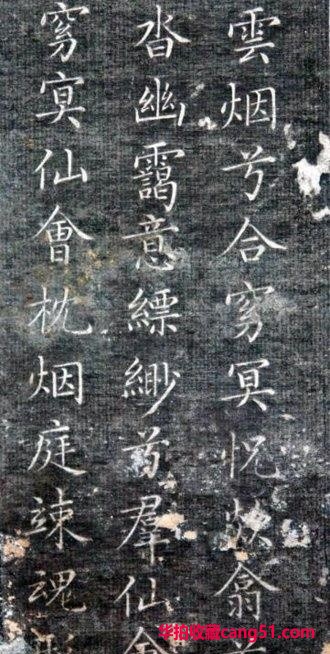 雲烟兮合窈冥怳欻翕
沓幽靄意縹緲兮羣仙會
窈冥仙會枕烟庭竦魂形
华拍收藏cang51.com